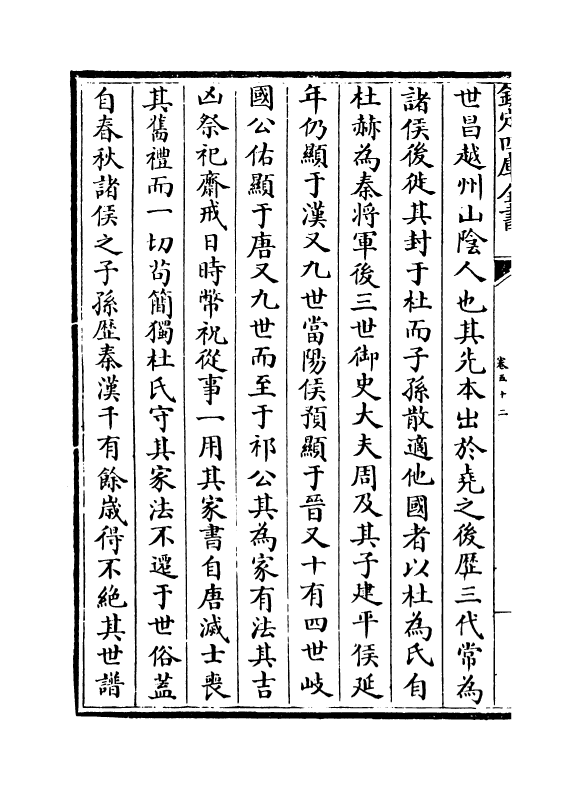 欽定四庫全書
卷五十二
世昌越州山陰人也其先本出於堯之後歴三代常為
諸侯後徙其封于杜而子孫散適他國者以杜為氏自
杜赫為秦将軍後三世御史大夫周及其子建平侯延
年仍顯于漢又九世當陽侯預顯于晉又十有四世岐
國公佑顯于唐又九世而至于祁公其為家有法其吉
凶祭祀齋戒日時幣祝從事一用其家書自唐滅士喪
其舊禮而一切苟簡獨杜氏守其家法不遷于世俗蓋
自春秋諸侯之子孫歴秦漢千有餘歲得不絶其世譜